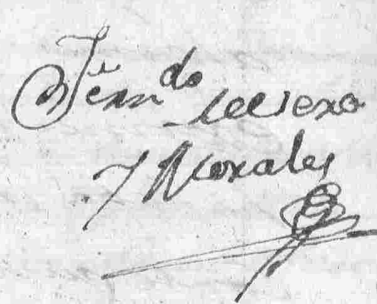 Fern^do Mexa
y Morales